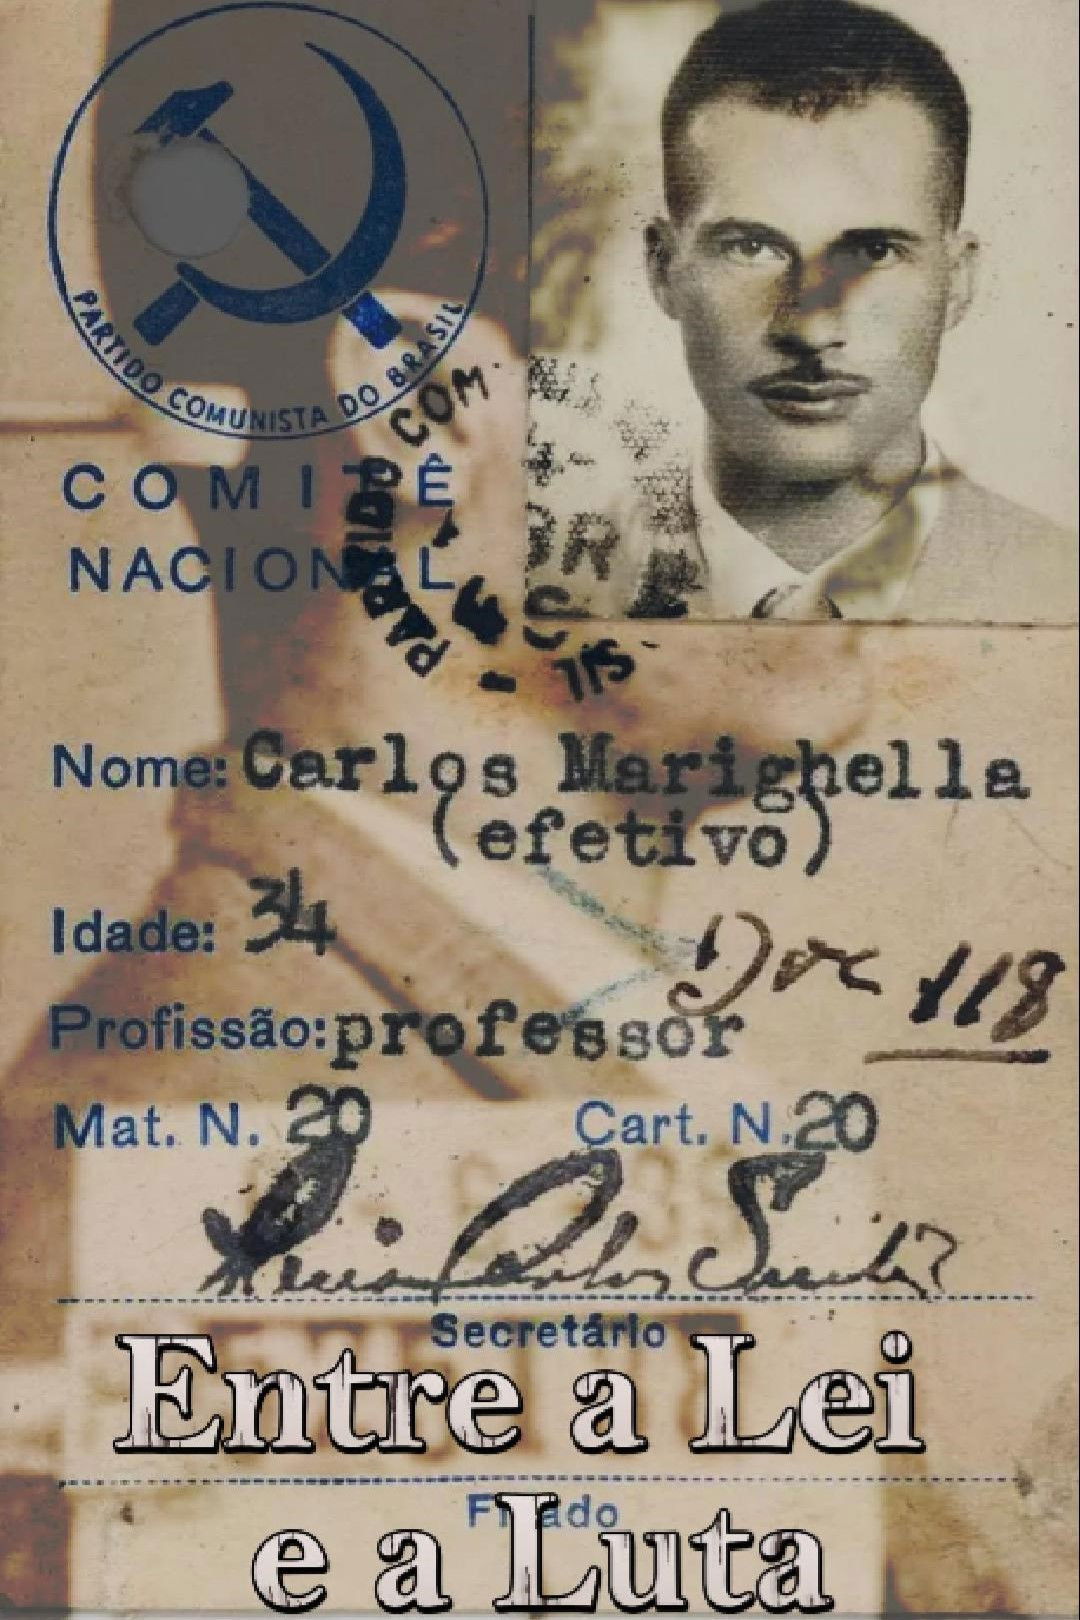 PARTIDO COMUNISTA DO BRASIL
COMITÊ
NACIONAL
PARTIDO COM.
SIL
Nome: Carlos Marighella
(efetivo)
Idade: 34
Doc 118
Profissão: professor
Mat. N. 20 Cart. N. 20
Secretário
Entre a Lei
e a Luta